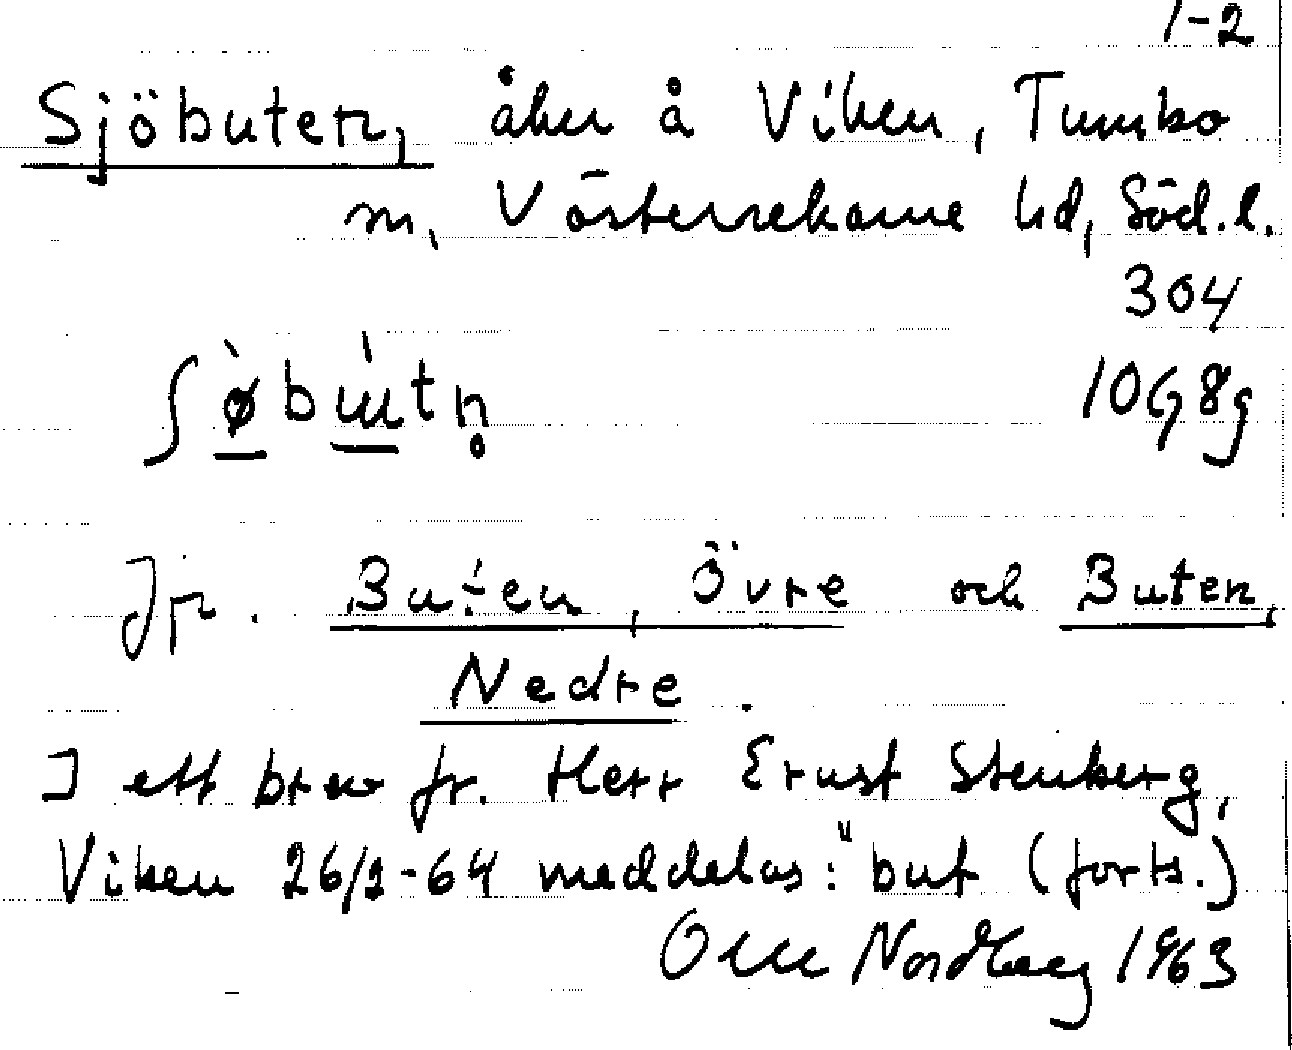 1-2
Sjöbuten, åker å Viken, Tumbo
sn, Västerrekarne hd, Söd. l.
304
10G 8g
Jfr. Buten, Övre och Buten,
Nedre.
I ett brev fr. Herr Ernst Stenberg,
Viken 26/2-64 meddelas: "but (forts.)
Olle Nordberg 1963